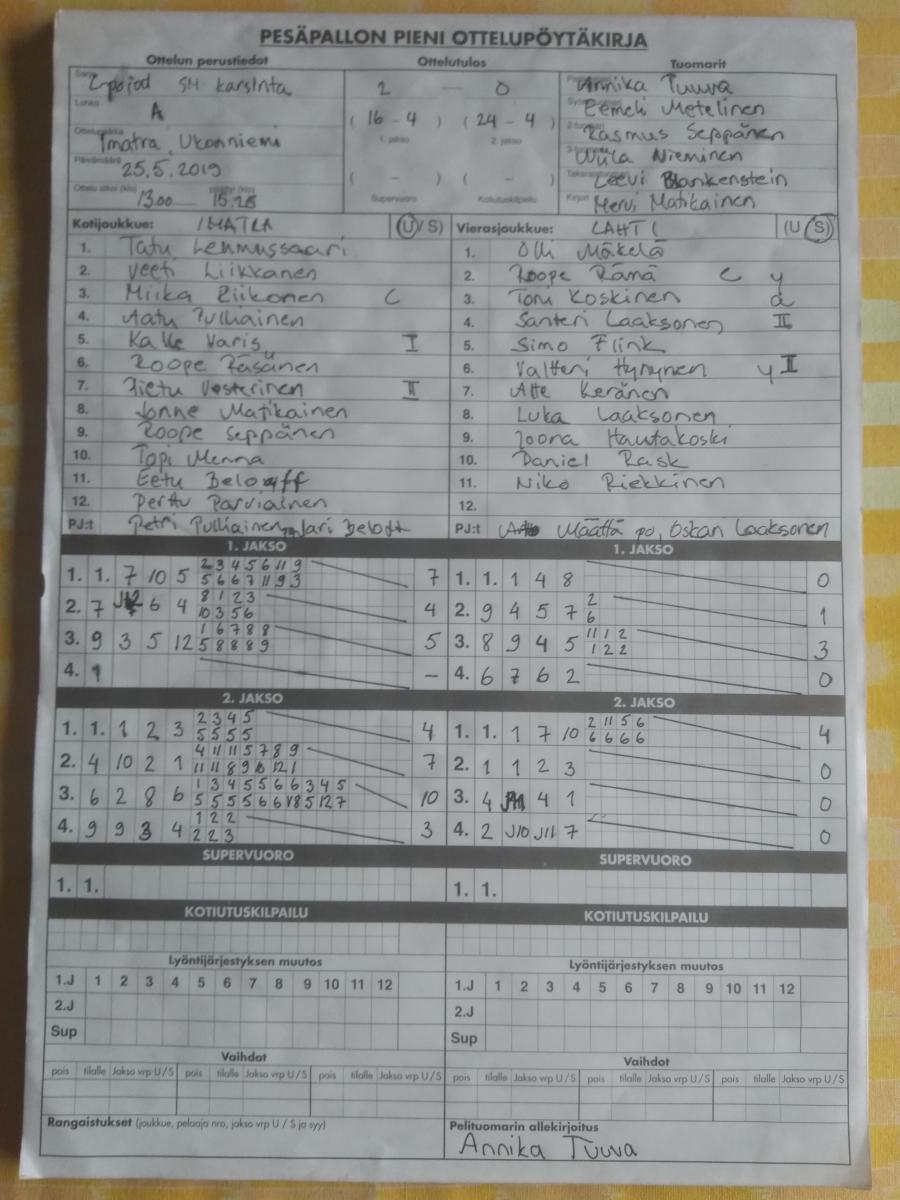 PESÄPALLON PIENI OTTELUPÖYTÄKIRJA
Ottelun perustiedot Ottelutulos Tuomarit
Sarja pojat SM karsinta 2 — 0 Annika Tuuva
Lohko A Eemeli Metelinen
( 16 - 4 ) ( 24 - 4 ) Rasmus Seppänen
1. jakso 2. jakso
Ottelupaikka Imatra, Ukonniemi Nieminen
Päivämäärä 25.5.2019 ( - ) ( - ) Leevi Blankenstein
Ottelu alkoi (klo) 13.00 15.28 Supervuoro Kotiutuskilpailu Kirjuri Mervi Matikainen
Kotijoukkue: IMATRA (U/S) Vierasjoukkue: LAHTI (U S)
1. Tatu Lehmussaari 1. Olli Mäkelä
2. Veeti Liikkanen 2. Roope Rämä C y
3. Miika Riikonen C 3. Tomi Koskinen d
4. Aatu Pulliainen 4. Santeri Laaksonen II
5. Kalle Varis I 5. Simo Flink
6. Roope Räsänen 6. Valtteri Hynynen y II
7. Vesterinen II 7. Atte Keränen
8. Jonne Matikainen 8. Luka Laaksonen
9. Roope Seppänen 9. Joona Hautakoski
10. Topi Menna 10. Daniel Rask
11. Eetu Beloff 11. Niko Riekkinen
12. Perttu Parviainen 12.
PJ:t Petri Pulliainen, Jari Beloff PJ:t Määttä po, Oskari Laaksonen
1. JAKSO 1. JAKSO
1. 1. 7 10 5 2 3 4 5 6 11 9 7 1. 1. 1 4 8 0
5 6 6 7 11 9 3
2. 7 6 4 8 1 2 3 4 2. 9 4 5 7 2 1
10 3 5 6 6
3. 9 3 5 12 1 6 7 8 8 5 3. 8 9 4 5 11 1 2 3
5 8 8 8 9 1 2 2
4. 1 – 4. 6 7 6 2 0
2. JAKSO 2. JAKSO
1. 1. 1 2 3 2 3 4 5 4 1. 1. 1 7 10 2 11 5 6 4
5 5 5 5 6 6 6 6
2. 4 10 2 1 4 11 11 5 7 8 9 7 2. 1 1 2 3 0
11 11 8 9 10 12 1
3. 6 2 8 6 1 3 4 5 5 6 6 3 4 5 10 3. 4 4 1 0
5 5 5 5 6 6 8 5 12 7
4. 9 9 3 4 1 2 2 3 4. 2 J10 J11 7 0
2 2 3
SUPERVUORO SUPERVUORO
1. 1. 1. 1.
KOTIUTUSKILPAILU KOTIUTUSKILPAILU
Lyöntijärjestyksen muutos Lyöntijärjestyksen muutos
1.J 1 2 3 4 5 6 7 8 9 10 11 12 1.J 1 2 3 4 5 6 7 8 9 10 11 12
2.J 2.J
Sup Sup
Vaihdot Vaihdot
pois tilalle Jakso vrp U/S pois tilalle Jakso vrp U/S pois tilalle Jakso vrp U/S pois tilalle Jakso vrp U/S pois tilalle Jakso vrp U/S pois tilalle Jakso vrp U/S
Rangaistukset (joukkue, pelaaja nro, jakso vrp U / S ja syy) Pelituomarin allekirjoitus
Annika Tuuva